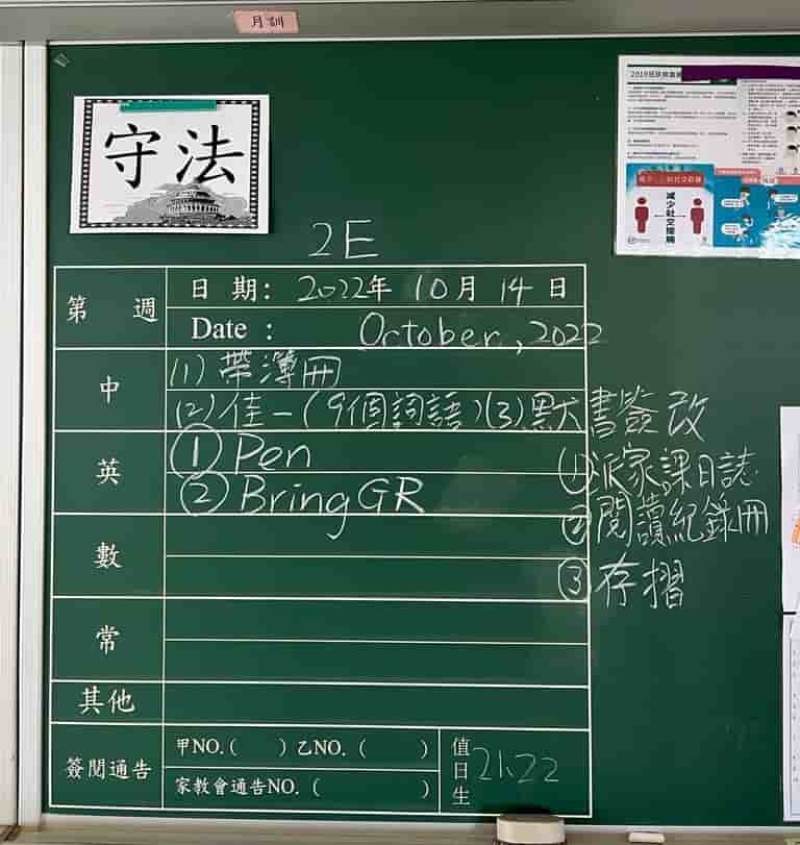 月訓
守法
減少社交接觸
2E
第 週
日 期: 2022年 10月 14日
Date : October, 2022
中
(1) 帶簿冊
(2) 佳一(9個詞語)(3)默書簽改
英
① Pen
② Bring GR
①派家課日誌
②閱讀紀錄冊
③存摺
數
常
其他
簽閱通告
甲NO.( ) 乙NO. ( )
家教會通告NO. ( )
值日生
21、22